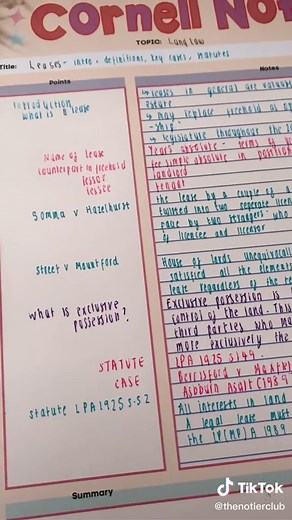 Cornell No
TOPIC: Land Law
Title: Leases - intro, definitions, key cases, statutes
Points
Notes
Introduction
What is a lease
↳ leases in general are valuable
estate
↳ may replace freehold as
-ship.
↳ legislature throughout the
Name of lease
counterpart in freehold
lessor
lessee
Years absolute - terms of
fee simple absolute in possession
landlord
tenant
Somma v Hazelhurst
the lease by a couple of a
turned into two seperate licen
gave by two strangers - who
of licensee and licensor
Street v Mountford
House of lords unequivocall
satisfied all the elements
lease regardless of the
what is exclusive
possession?
Exclusive possession is
control of the land. This
third parties who ma
more exclusively the
STATUTE
CASE
LPA 1925 S149
Berrisford v
statute LPA 1925 S.52
All interests in land
A legal lease must
the LP(MP)A 1989
Summary
TikTok
@thenotierclub